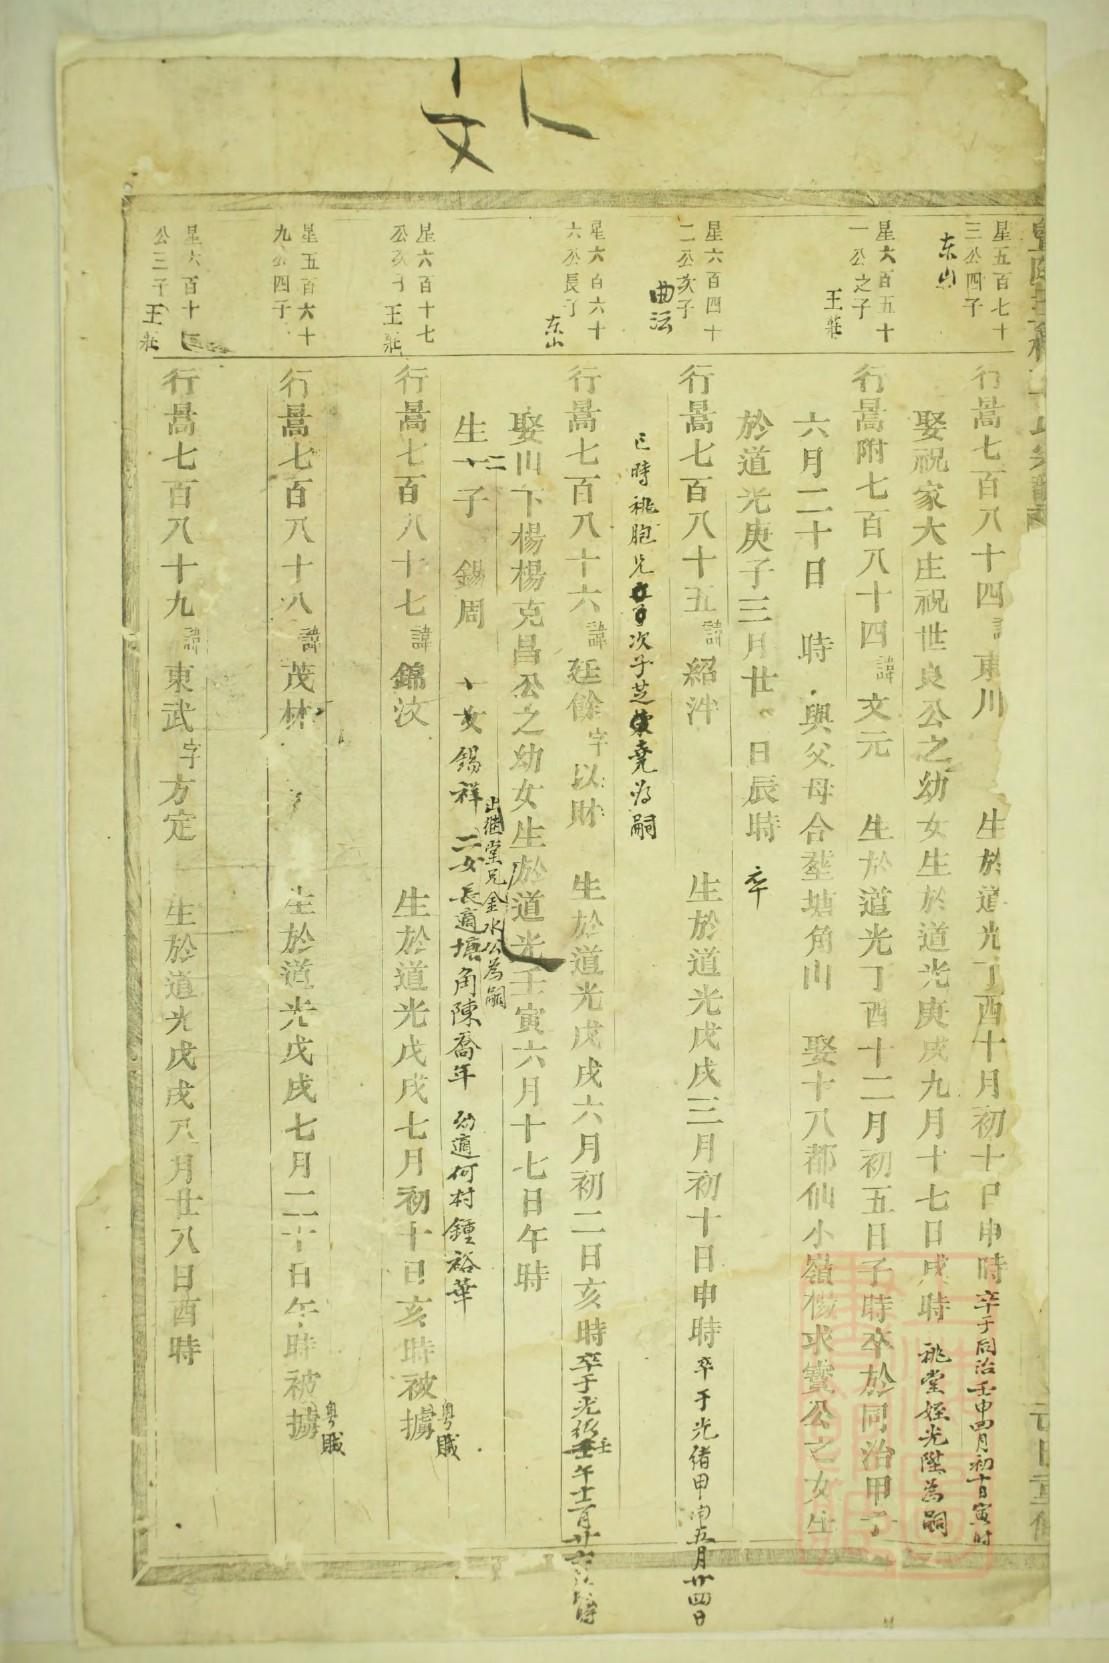 文
星五百七十
三公四子
东山
行暠七百八十四諱東川 生於道光丁酉十月初十日申時卒于同治壬申四月初十日寅时
娶祝家大庄祝世良公之幼女生於道光庚戌九月十七日戌時 祧堂姪光陞為嗣
星六百五十
一公之子
王莊
行暠附七百八十四諱文元 生於道光丁酉十二月初五日子時卒於同治甲子
六月二十日 時 與父母合塟塘角山 娶十八都仙小嶺楊求寶公之女生
於道光庚子三月廿 日辰時 卒
星六百四十
二公次子
曲沄
行暠七百八十五諱紹沖 生於道光戊戌三月初十日申時 卒于光緒甲申五月廿四日
巳時祧胞兄 次子芝 堯為嗣
星六百六十
六公長子
东山
行暠七百八十六諱廷餘字以財 生於道光戊戌六月初二日亥時卒于光緒壬午十二月廿
娶山下楊楊克昌公之幼女生於道光壬寅六月十七日午時
出繼堂兄金水公為嗣
生二子 錫周 錫祥 二女長適塘角陳喬年 幼適何村鍾裕華
星六百十七
公次子
王莊
行暠七百八十七諱錦汶 生於道光戊戌七月初十日亥時被擄
粵賊
星五百六十
九公四子
行暠七百八十八諱茂林 生於道光戊戌七月二十日午時被擄
粵賊
星六百十
公三子
王莊
行暠七百八十九諱東武字方定 生於道光戊戌八月廿八日酉時